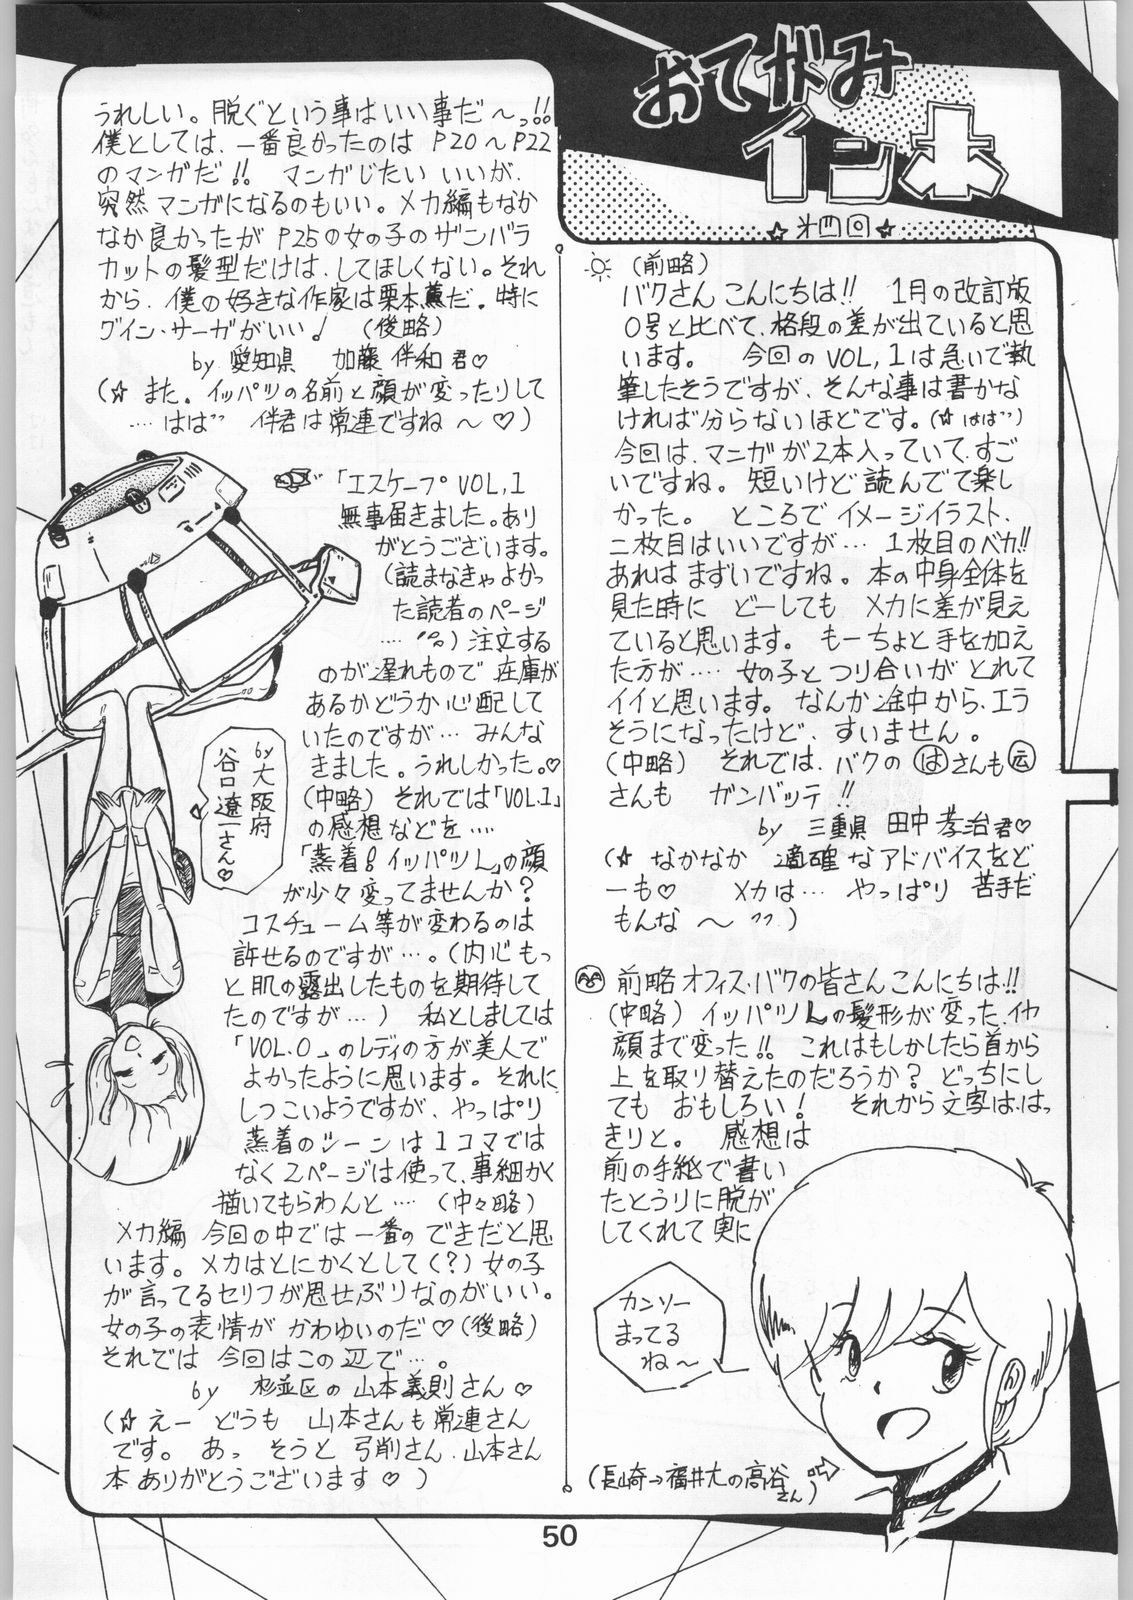 おてがみ
イン本
☆オ四回☆
(前略)
バクさん こんにちは!! 1月の改訂版
0号と比べて、格段の差が出ていると思
います。 今回のVOL,1は急いで執
筆したそうですが、そんな事は書かな
ければ分らないほどです。(☆はは〃)
今回は、マンガが2本入っていて、すご
いですね。短いけど読んでて楽し
かった。 ところでイメージイラスト、
二枚目はいいですが… 1枚目のベカ!!
あれはまずいですね。本の中身全体を
見た時に どーしても メカに差が見え
ていると思います。もーちょと手を加え
た方が…. 女の子とつり合いが とれて
イイと思います。なんか途中から、エラ
そうになったけど、すいません。
(中略) それでは、バクの はさんも云
さんも ガンバッテ!!
by 三重県 田中 孝治君♡
(☆ なかなか 適確なアドバイスをど
ーも♡ メカは… やっぱり 苦手だ
もんな ~ 〃)
前略 オフィス・バクの皆さんこんにちは!!
(中略) イッパツLの髪形が変った、イヤ
顔まで変った!! これはもしかしたら首から
上を取り替えたのだろうか? どっちにし
ても おもしろい! それから文字は、はっ
きりと。 感想は
前の手紙で書い
たとうりに脱が
してくれて実に
カンソー
まってる
ね~
(長崎→福井大の高谷
さん)
うれしい。脱ぐという事はいい事だ~っ!!
僕としては、一番良かったのは P20~P22
のマンガだ!! マンガじたい いいが、
突然マンガになるのもいい。メカ編もなか
なか良かったが P25の女の子のザンバラ
カットの髪型だけは、してほしくない。それ
から、僕の好きな作家は栗本薫だ。特に
グイン・サーガがいい! (後略)
by 愛知県 加藤 伴和 君♡
(☆ また。イッパツの名前と顔が変ったりして
…はは〃 伴君は常連ですね~♡)
「エスケープ VOL,1
無事届きました。あり
がとうございます。
(読まなきゃよかっ
た読者のページ
….〃)注文する
のが遅れもので 在庫が
あるかどうか心配して
いたのですが… みんな
きました。うれしかった。♡
(中略) それでは「VOL.1」
の感想などを….
「蒸着!イッパツL」の顔
が少々変ってませんか?
コスチューム等が変わるのは
許せるのですが…。(内心もっ
と肌の露出したものを期待して
たのですが…) 私としましては
「VOL.0」のレディの方が美人で
よかったように思います。それに
しつこいようですが、やっぱり
蒸着のシーンは1コマでは
なく2ページは使って、事細かく
描いてもらわんと…. (中々略)
メカ編 今回の中では一番のできだと思
います。メカはとにかくとして(?)女の子
が言ってるセリフが思せぶりなのがいい。
女の子の表情が かわゆいのだ♡(後略)
それでは 今回はこの辺で…。
by 杉並区の 山本義則さん♡
(☆ えー どうも 山本さんも常連さん
です。あっ そうと 弓削さん、山本さん
本ありがとうございます♡)
by 大阪府
谷口遼一さん♡
50